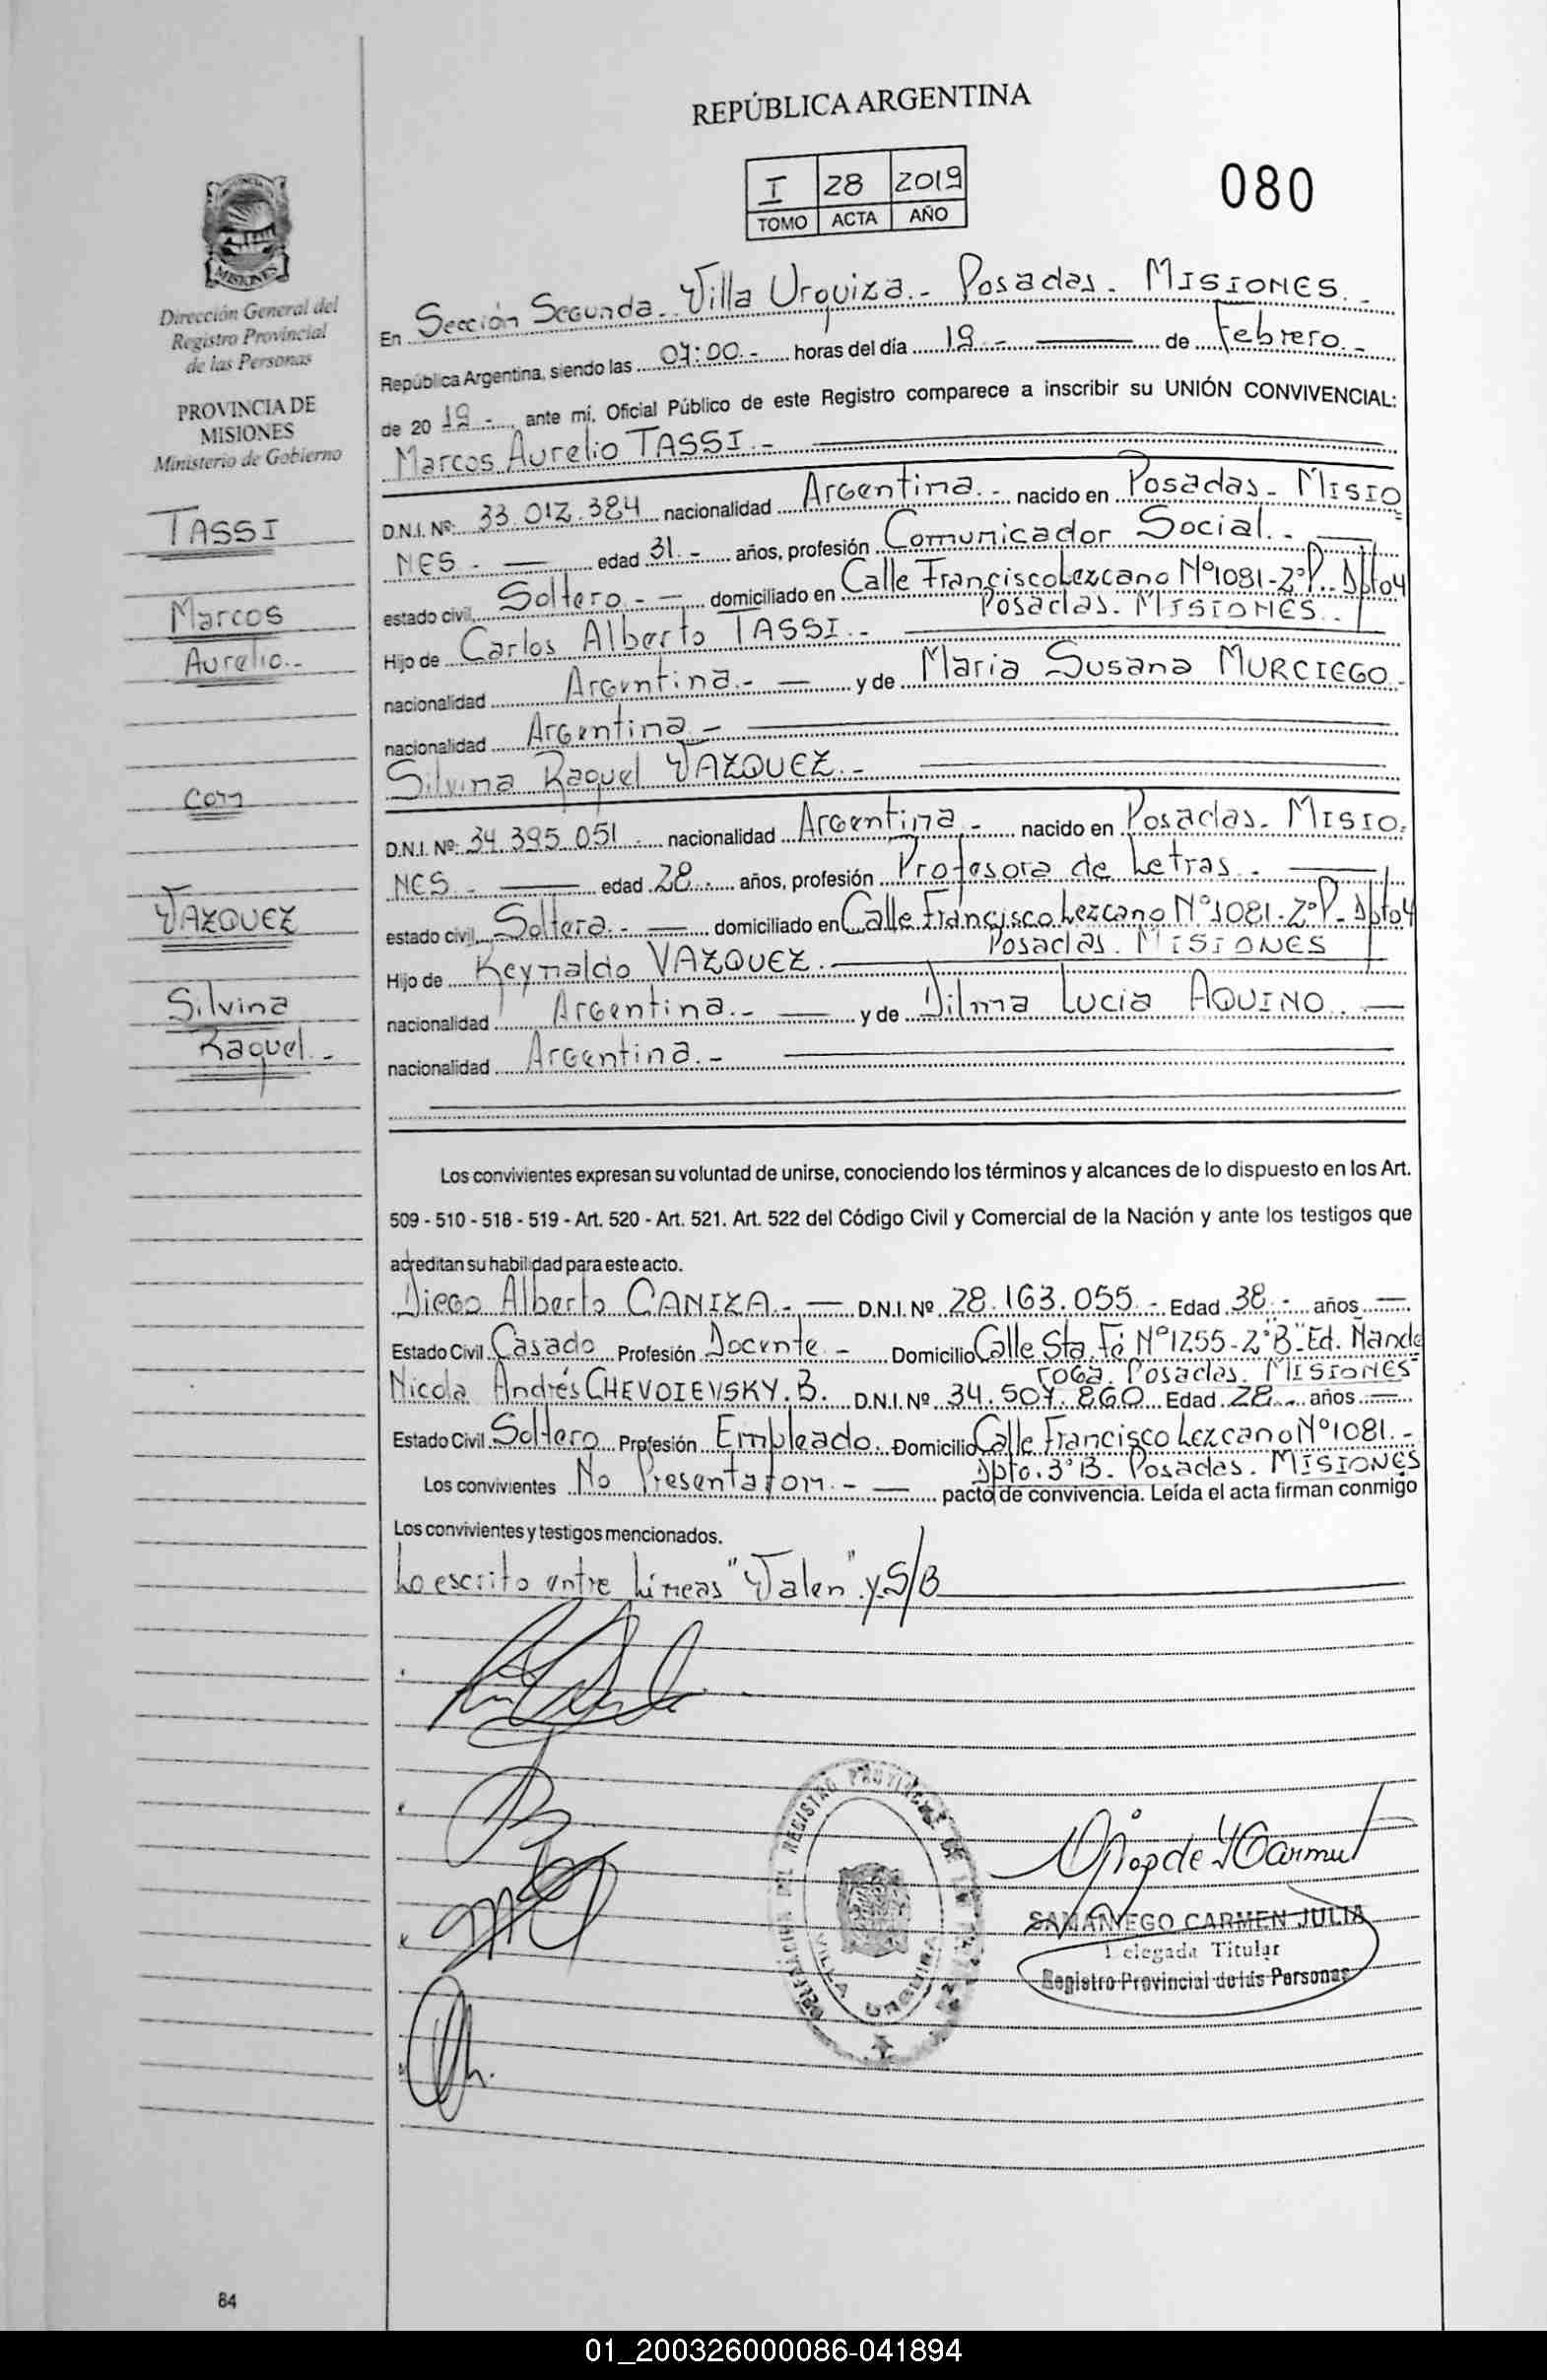 REPÚBLICA ARGENTINA
I 28 2019
TOMO ACTA AÑO
080
MISIONES
Dirección General del
Registro Provincial
de las Personas
PROVINCIA DE
MISIONES
Ministerio de Gobierno
TASSI
Marcos
Aurelio.-
Con
VAZQUEZ
Silvina
Raquel.-
En Sección Segunda. Villa Urquiza.- Posadas. MISIONES.-
República Argentina, siendo las 07:00.- horas del día 19.- de Febrero.-
de 20 19.- ante mí, Oficial Público de este Registro comparece a inscribir su UNIÓN CONVIVENCIAL:
Marcos Aurelio TASSI.-
D.N.I. Nº: 33.012.384 nacionalidad Argentina.- nacido en Posadas- MISIO
NES.- edad 31.- años, profesión Comunicador Social.-
estado civil, Soltero.- domiciliado en Calle Francisco Lezcano Nº1081-2ºP. Dpto4
Posadas. MISIONES.-
Hijo de Carlos Alberto TASSI.-
nacionalidad Argentina.- y de Maria Susana MURCIEGO.-
nacionalidad Argentina.-
Silvina Raquel VAZQUEZ.-
D.N.I. Nº: 34.395.051.- nacionalidad Argentina.- nacido en Posadas. MISIO.
NES.- edad 28.- años, profesión Profesora de Letras.-
estado civil, Soltera.- domiciliado en Calle Francisco Lezcano Nº1081-2ºP- Dpto4
Posadas. MISIONES
Hijo de Reynaldo VAZQUEZ.
nacionalidad Argentina.- y de Dilma Lucia AQUINO.-
nacionalidad Argentina.-
Los convivientes expresan su voluntad de unirse, conociendo los términos y alcances de lo dispuesto en los Art.
509 - 510 - 518 - 519 - Art. 520 - Art. 521. Art. 522 del Código Civil y Comercial de la Nación y ante los testigos que
acreditan su habilidad para este acto.
Diego Alberto CANIZA.- D.N.I. Nº 28.163.055.- Edad 38.- años
Estado Civil Casado Profesión Docente.- Domicilio Calle Sta. Fé Nº1255-2º"B" Ed. Ñande
roga. Posadas. MISIONES
Nicola Andrés CHEVOIEVSKY.B. D.N.I. Nº 34.507.860 Edad 28 años
Estado Civil Soltero Profesión Empleado. Domicilio Calle Francisco Lezcano Nº1081.-
Dpto. 3ºB. Posadas. MISIONES
Los convivientes No Presentaron.- pacto de convivencia. Leída el acta firman conmigo
Los convivientes y testigos mencionados.
Lo escrito entre Líneas "Valen" y S/B
DELEGACION DEL REGISTRO PROVINCIAL DE LAS
VILLA URQUIZA
SAMANIEGO CARMEN JULIA
Delegada Titular
Registro Provincial de las Personas
84
01_200326000086-041894